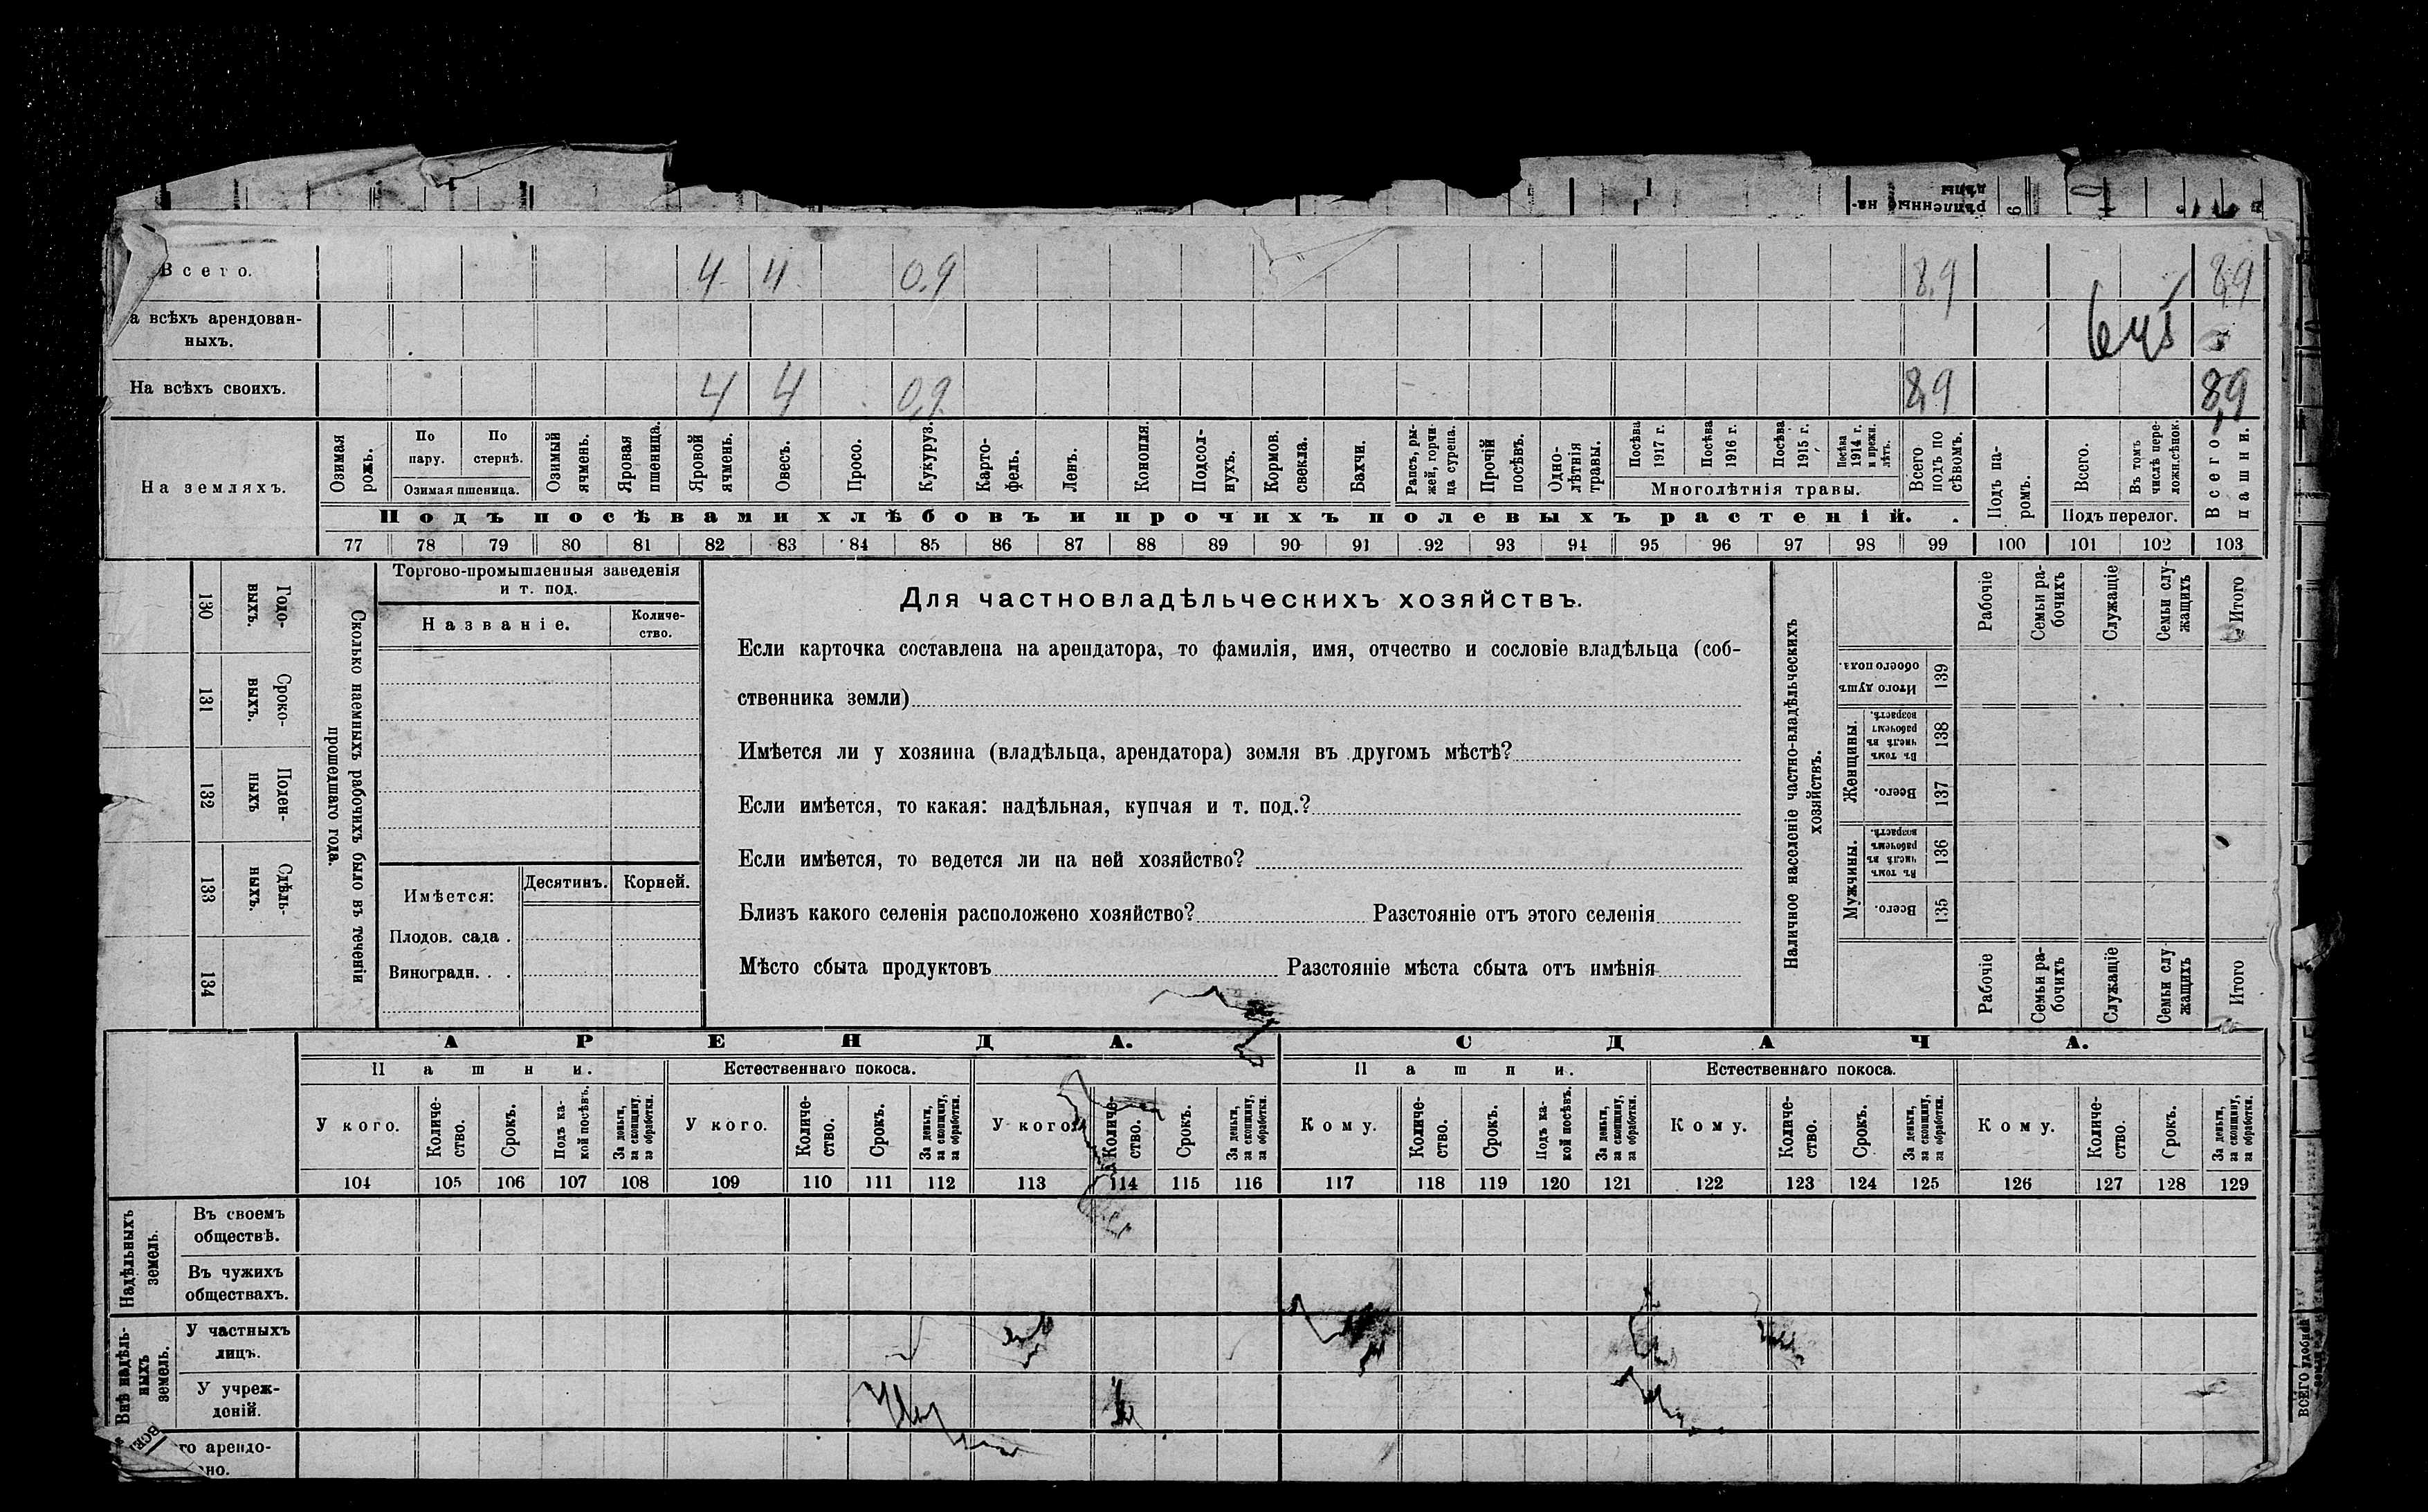 Всего. 4 4 0,9 8,9 8,9
а всѣхъ арендован-
ныхъ.
На всѣхъ своихъ. 4 4 0,9 8,9 8,9
На земляхъ.
Озимая рожь.
По пару.
По стернѣ.
Озимая пшеница.
Озимый ячмень.
Яровая пшеница.
Яровой ячмень.
Овесъ.
Просо.
Кукуруз.
Карто-
фель.
Ленъ.
Конопля.
Подсол-
нухъ.
Кормов. свекла.
Бахчи.
Рапсъ, ры-
жей, горчи-
ца сурепа.
Прочій посѣвъ.
Одно-
лѣтнія травы.
Посѣва 1917 г.
Посѣва 1916 г.
Посѣва 1915 г.
Посѣва 1914 г. и прежн. лѣтъ.
Многолѣтнія травы.
Всего подъ по
сѣвомъ.
Подъ па-
ромъ.
Всего.
Въ томъ числѣ пере-
ложн.сѣнок.
Подъ перелог.
Всего пашни.
Подъ посѣвами хлѣбовъ и прочихъ полевыхъ растеній.
77 78 79 80 81 82 83 84 85 86 87 88 89 90 91 92 93 94 95 96 97 98 99 100 101 102 103
130 Годо-
выхъ.
131 Сроко-
выхъ.
132 Поден-
ныхъ
133 Сдѣль-
ныхъ.
134
Сколько наемныхъ рабочихъ было въ теченіи
прошедшаго года.
Торгово-промышленныя заведенія
и т. под.
Названіе.
Количе-
ство.
Имѣется:
Десятинъ. Корней.
Плодов. сада .
Виноградн. . .
Для частновладѣльческихъ хозяйствъ.
Если карточка составлена на арендатора, то фамилія, имя, отчество и сословіе владѣльца (соб-
ственника земли)
Имѣется ли у хозяина (владѣльца, арендатора) земля въ другомъ мѣстѣ?
Если имѣется, то какая: надѣльная, купчая и т. под.?
Если имѣется, то ведется ли на ней хозяйство?
Близъ какого селенія расположено хозяйство? Разстояніе отъ этого селенія
Мѣсто сбыта продуктовъ Разстояніе мѣста сбыта отъ имѣнія
Наличное населеніе частно-владѣльческихъ
хозяйствъ.
Рабочіе
Семьи ра-
бочихъ
Служащіе
Семьи слу-
жащихъ
Итого
Итого душъ обоего пола. 139
Женщины.
Въ томъ числѣ въ рабочемъ возрастѣ. 138
Всего. 137
Мужчины.
Въ томъ числѣ въ рабочемъ возрастѣ. 136
Всего. 135
Рабочіе
Семьи ра-
бочихъ
Служащіе
Семьи слу
жащихъ
Итого
АРЕНДА. СДАЧА.
Пашни. Естественнаго покоса. Пашни. Естественнаго покоса.
У кого.
Количе-
ство.
Срокъ.
Подъ ка-
кой посѣвъ.
За деньги,
за скопщину,
за обработки.
У кого.
Количе-
ство.
Срокъ.
За деньги,
за скопщину,
за обработки.
У кого.
Количе-
ство.
Срокъ.
За деньги,
за скопщину,
за обработки.
Кому.
Количе-
ство.
Срокъ.
Подъ ка-
кой посѣвъ.
За деньги,
за скопщину,
за обработки.
Кому.
Количе-
ство.
Срокъ.
За деньги,
за скопщину,
за обработки.
Кому.
Количе-
ство.
Срокъ.
За деньги,
за скопщину,
за обработки.
104 105 106 107 108 109 110 111 112 113 114 115 116 117 118 119 120 121 122 123 124 125 126 127 128 129
Надѣльныхъ
земель.
Въ своемъ
обществѣ.
Въ чужихъ
обществахъ.
Внѣ надѣль-
ныхъ
земель.
У частныхъ
лицъ.
У учреж-
деній.
го арендо-
ано.
ВСЕГО удобной